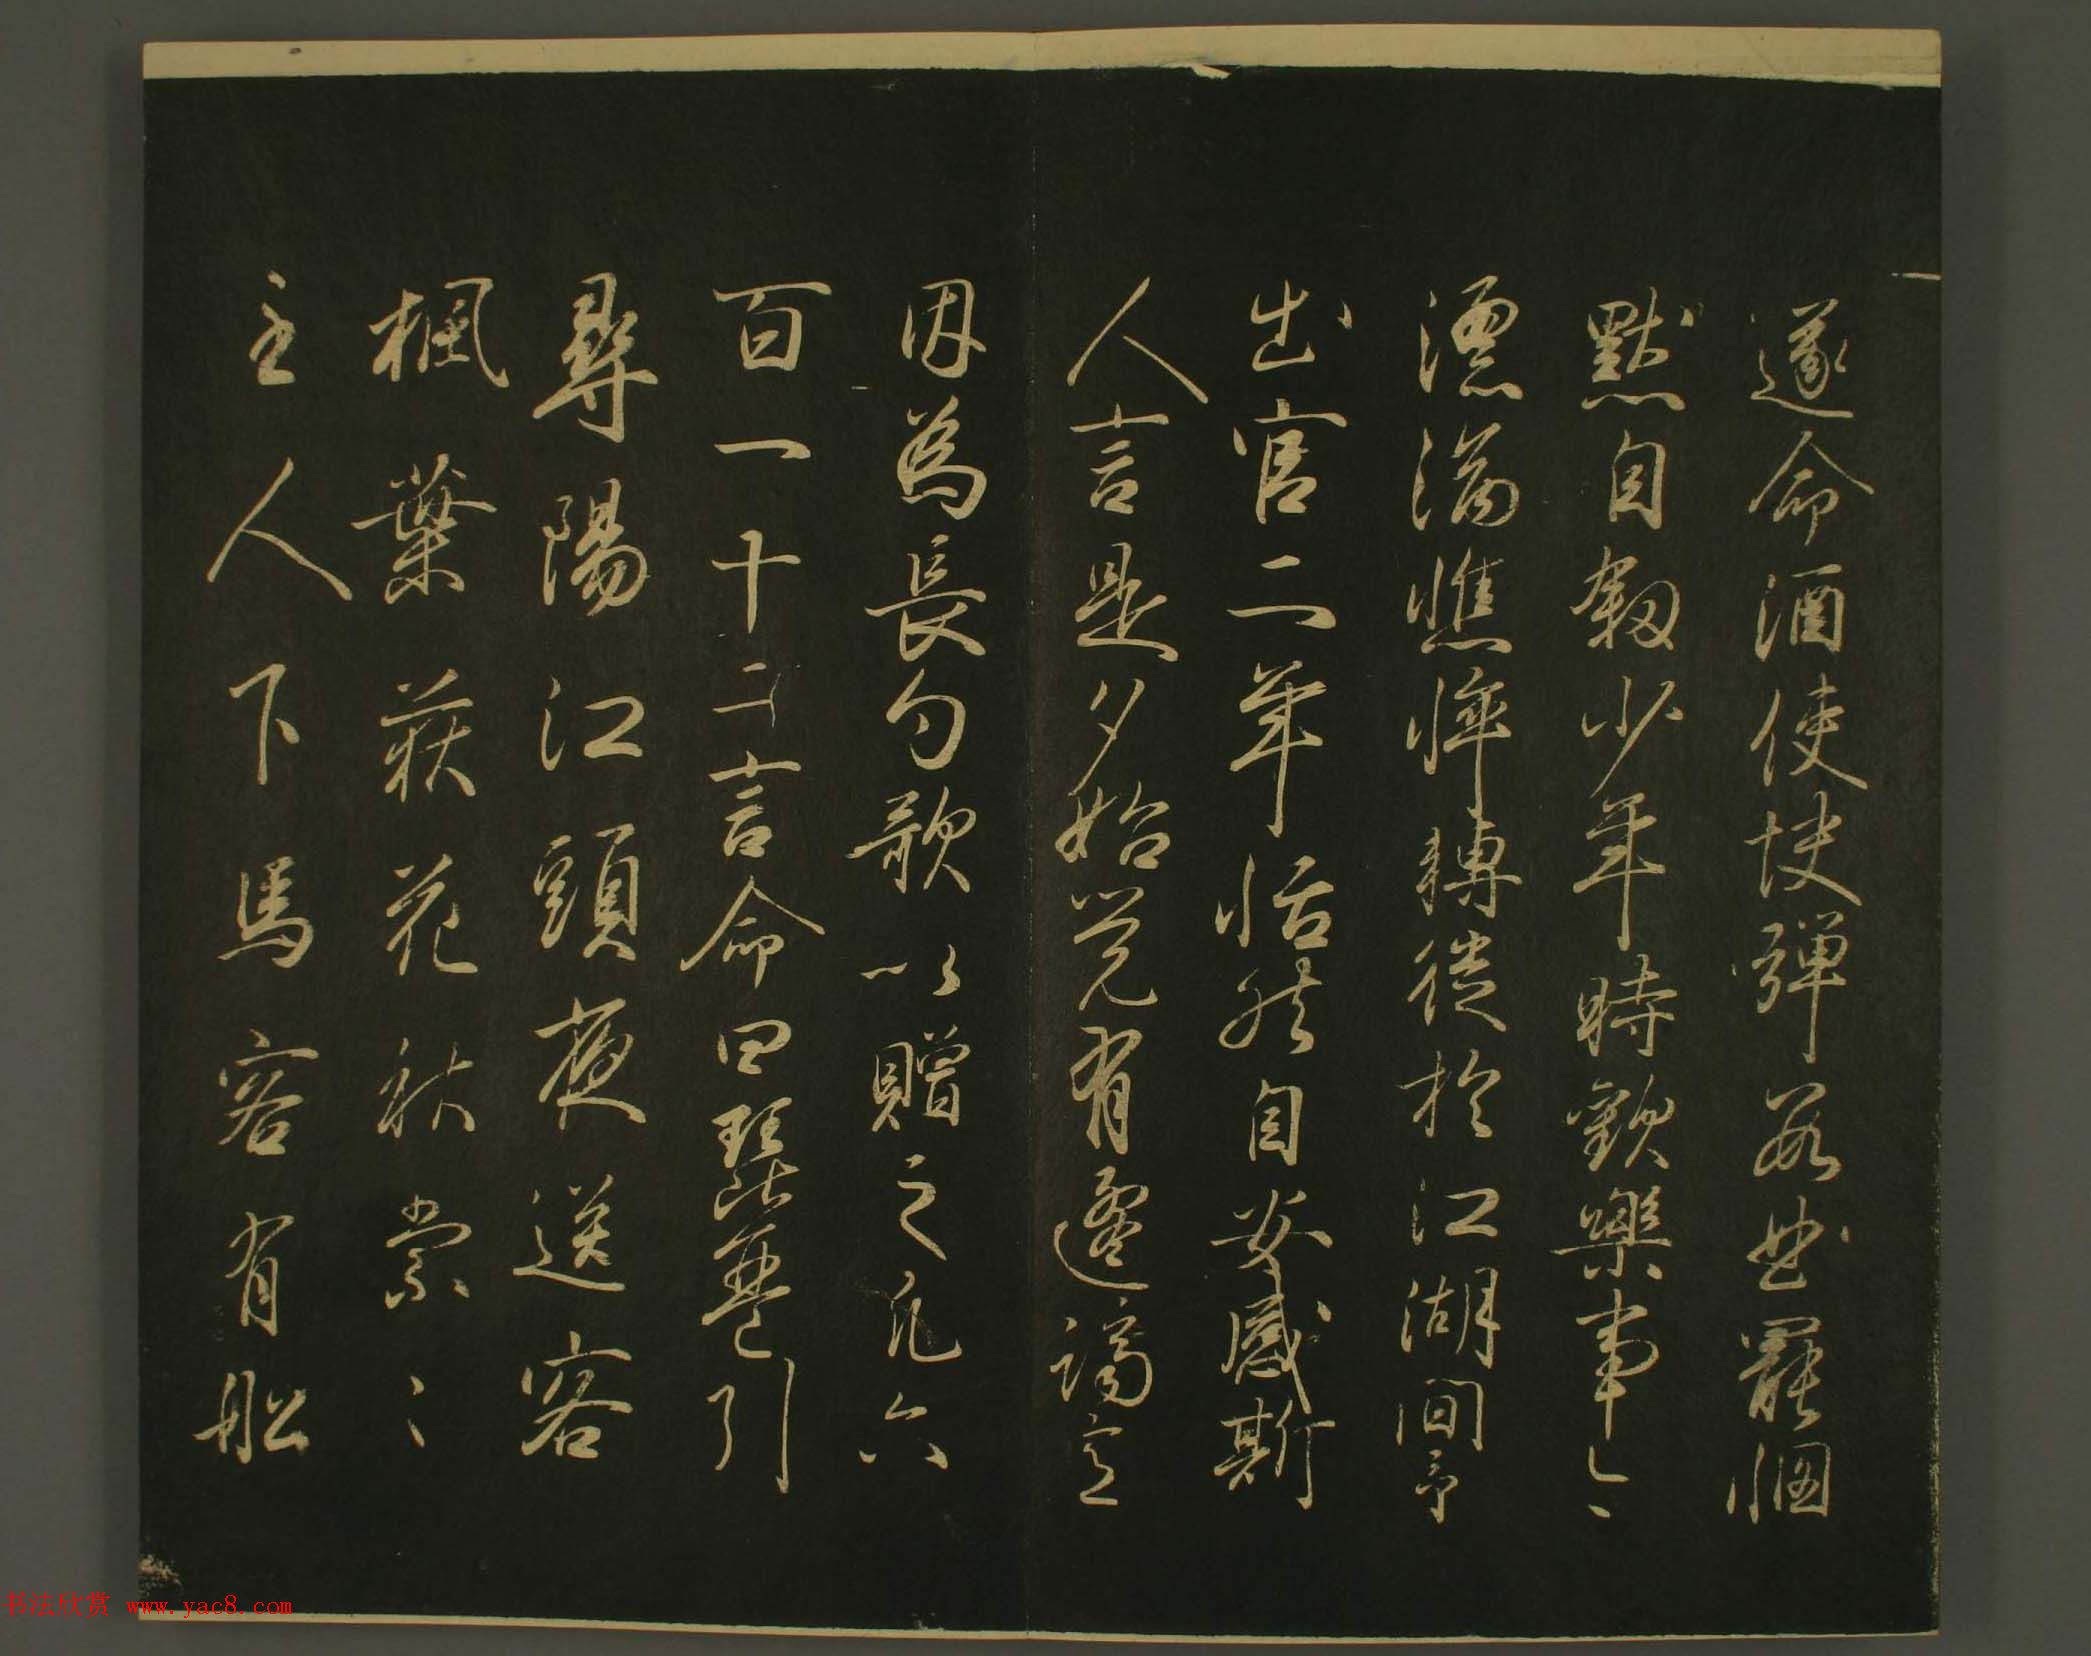 遂命酒使快彈數曲罷悃
默自叙少年時歡樂事今
漂淪憔悴轉徙於江湖間予
出官二年恬然自安感斯
人言是夕始覺有遷謫意
因為長句歌以贈之凡六
百一十二言命曰琵琶引
尋陽江頭夜送客
楓葉荻花秋索〻
主人下馬客有船
书法欣赏 www.yac8.com